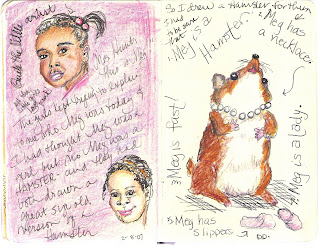 the little artist
The girls kept trying to explain
to me who Meg was today &
I had thought Meg was a
girl but no Meg was a
HAMSTER and they'd
both drawn a
great six yr old
version of a
Hamster
2-8-07
So I drew a Hamster for them
I had
to be sure
that
1. Meg is a
Hamster.
2. Meg has
a necklace.
3. Meg is Fast!
4. Meg is a lady.
5. Meg has
slippers →
DD.